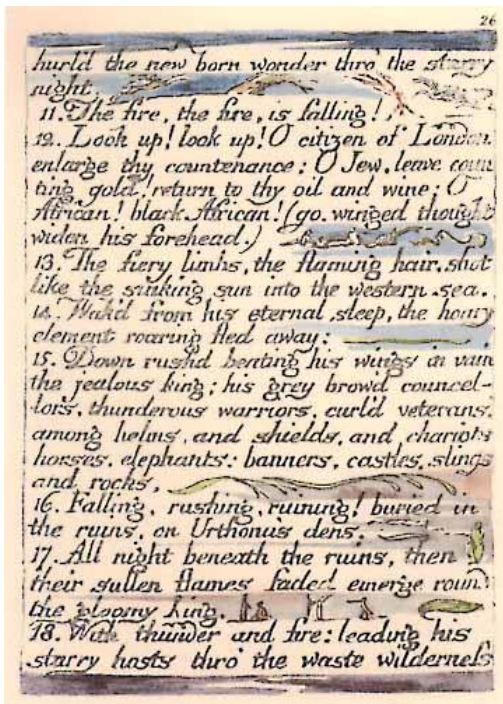 26
hurl'd the new born wonder thro' the starry
night.
11. The fire, the fire, is falling!
12. Look up! look up! O citizen of London.
enlarge thy countenance; O Jew, leave coun
ting gold! return to thy oil and wine; O
African! black African! (go. winged thought
widen his forehead.)
13. The fiery limbs, the flaming hair, shot
like the sinking sun into the western sea.
14. Wak'd from his eternal sleep, the hoary
element roaring fled away:
15. Down rushd beating his wings in vain
the jealous king; his grey brow'd councel-
lors, thunderous warriors, curl'd veterans,
among helms, and shields, and chariots
horses, elephants: banners, castles, slings
and rocks,
16. Falling, rushing, ruining! buried in
the ruins, on Urthona's dens.
17. All night beneath the ruins, then
their sullen flames faded emerge roun
the gloomy king,
18. With thunder and fire: leading his
starry hosts thro' the waste wilderness